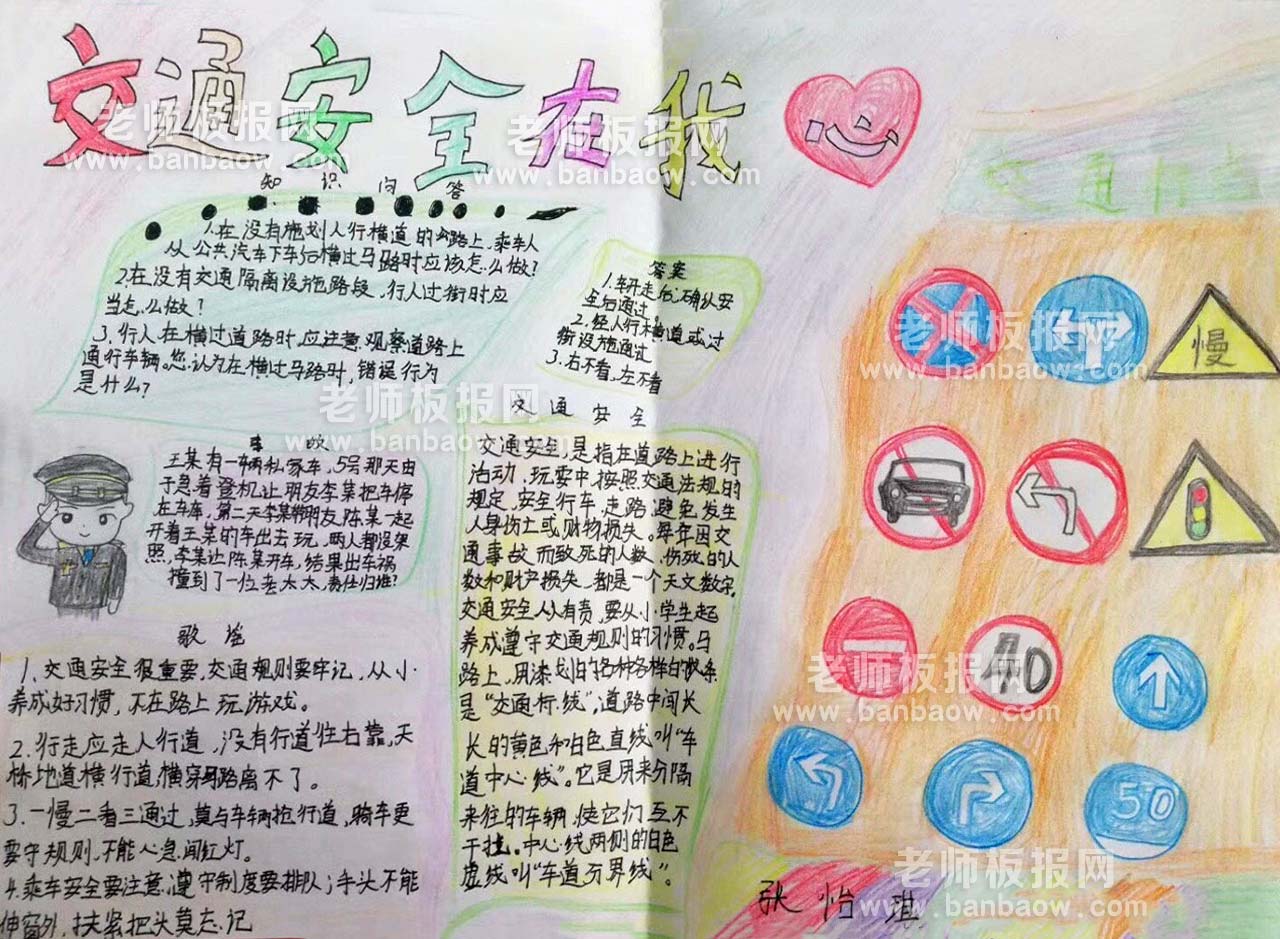 交通安全在我
知识问答
1.在没有施划人行横道的公路上,乘车人
从公共汽车下车后横过马路时应该怎么做?
2.在没有交通隔离设施路段,行人过街时应
当怎么做?
3.行人在横过道路时,应注意观察道路上
通行车辆。您认为在横过马路时,错误行为
是什么?
答案
1.车开走后,确认安
全后通过
2.经人行横道或过
街设施通过
3.右不看,左不看
交通安全
交通安全,是指在道路上进行
活动、玩耍中,按照交通法规的
规定,安全行车、走路,避免发生
人身伤亡或财物损失。每年因交
通事故而致死的人数、伤残的人
数和财产损失,都是一个天文数字。
交通安全人人有责,要从小学生起
养成遵守交通规则的习惯。马
路上,用漆划的各种各样的线条
是“交通标线”,道路中间长
长的黄色和白色直线叫“车
道中心线”。它是用来分隔
来往的车辆,使它们互不
干扰。中心线两侧的白色
虚线叫“车道分界线”。
王某有一辆私家车,5号那天由
于急着登机让朋友李某把车停
在车库,第二天李某带朋友陈某一起
开着王某的车出去玩,两人都没驾
照,李某让陈某开车,结果出车祸
撞到了一位老太太,责任归谁?
歌谣
1、交通安全很重要,交通规则要牢记,从小
养成好习惯,不在路上玩游戏。
2.行走应走人行道,没有行道往右靠,天
桥地道横行道,横穿马路离不了。
3.一慢二看三通过,莫与车辆抢行道,骑车更
要守规则,不能心急闯红灯。
4.乘车安全要注意,遵守制度要排队;手头不能
伸窗外,扶紧把头莫忘记
交通
慢
40
50
张怡琪
老师板报网
www.banbaow.com
老师板报网
www.banbaow.com
老师板报网
www.banbaow.com
老师板报网
www.banbaow.com
老师板报网
www.banbaow.com
老师板报网
www.banbaow.com
老师板报网
www.banbaow.com